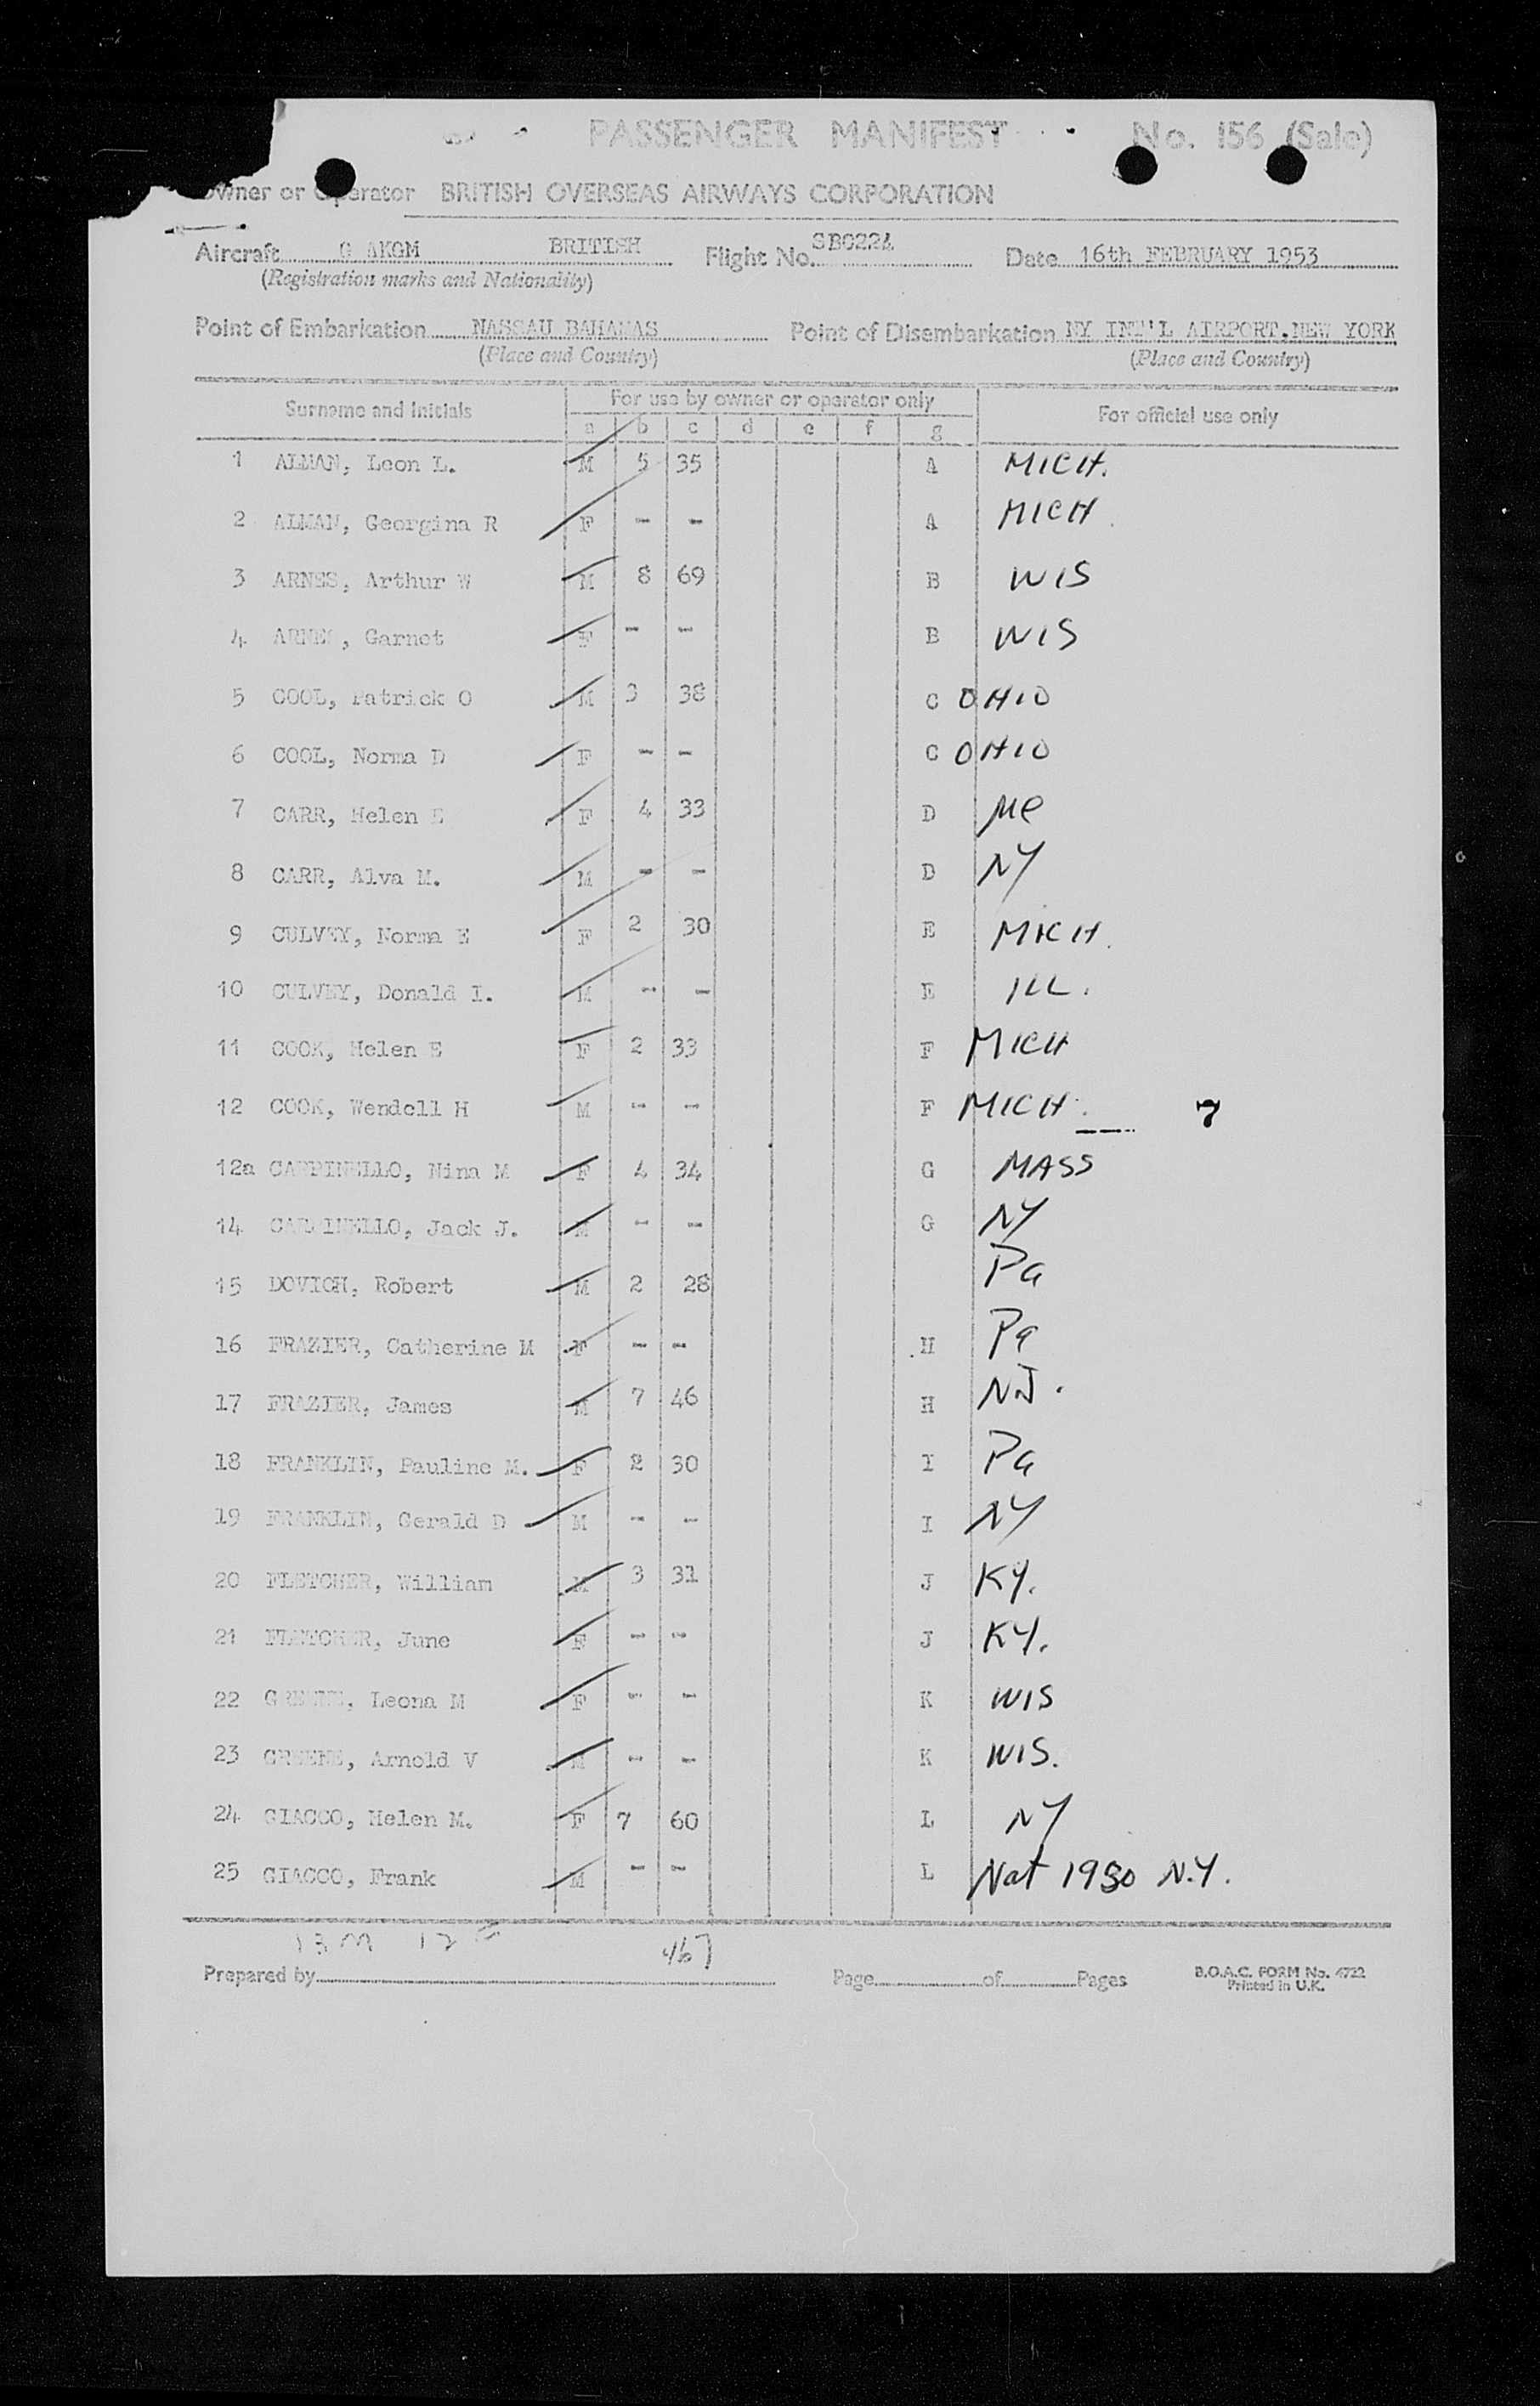 PASSENGER MANIFEST No. 156 (Sale)
Owner or Operator BRITISH OVERSEAS AIRWAYS CORPORATION
Aircraft G AKGM BRITISH Flight No. SB022A Date 16th FEBRUARY 1953
(Registration marks and Nationality)
Point of Embarkation NASSAU BAHAMAS Point of Disembarkation NY INT'L AIRPORT, NEW YORK
(Place and Country) (Place and Country)
Surname and Initials For use by owner or operator only For official use only
a b c d e f g
1 ALMAN, Leon L. M 5 35 A MICH.
2 ALMAN, Georgina R F - - A MICH
3 ARNES, Arthur W M 8 69 B WIS
4 ARNES, Garnet F - - B WIS
5 COOL, Patrick O M 3 38 C OHIO
6 COOL, Norma D F - - C OHIO
7 CARR, Helen E F 4 33 D Me
8 CARR, Alva M. M - - D NY
9 CULVEY, Norma E F 2 30 E MICH.
10 CULVEY, Donald I. M - - E ILL.
11 COOK, Helen E F 2 33 F MICH
12 COOK, Wendell H M - - F MICH. 7
12a CARPINELLO, Nina M F 4 34 G MASS
14 CARPINELLO, Jack J. M - - G NY
15 DOVICH, Robert M 2 28 Pa
16 FRAZIER, Catherine M F - - H Pa
17 FRAZIER, James M 7 46 H NJ.
18 FRANKLIN, Pauline M. F 2 30 I Pa
19 FRANKLIN, Gerald D M - - I NY
20 FLETCHER, William M 3 31 J KY.
21 FLETCHER, June F - - J KY.
22 GREENE, Leona M F - - K WIS
23 GREENE, Arnold V M - - K WIS.
24 GIACCO, Helen M. F 7 60 L NY
25 GIACCO, Frank M - - L Nat 1930 N.Y.
13M 12F 467
Prepared by Page of Pages B.O.A.C. FORM No. 4722
Printed in U.K.